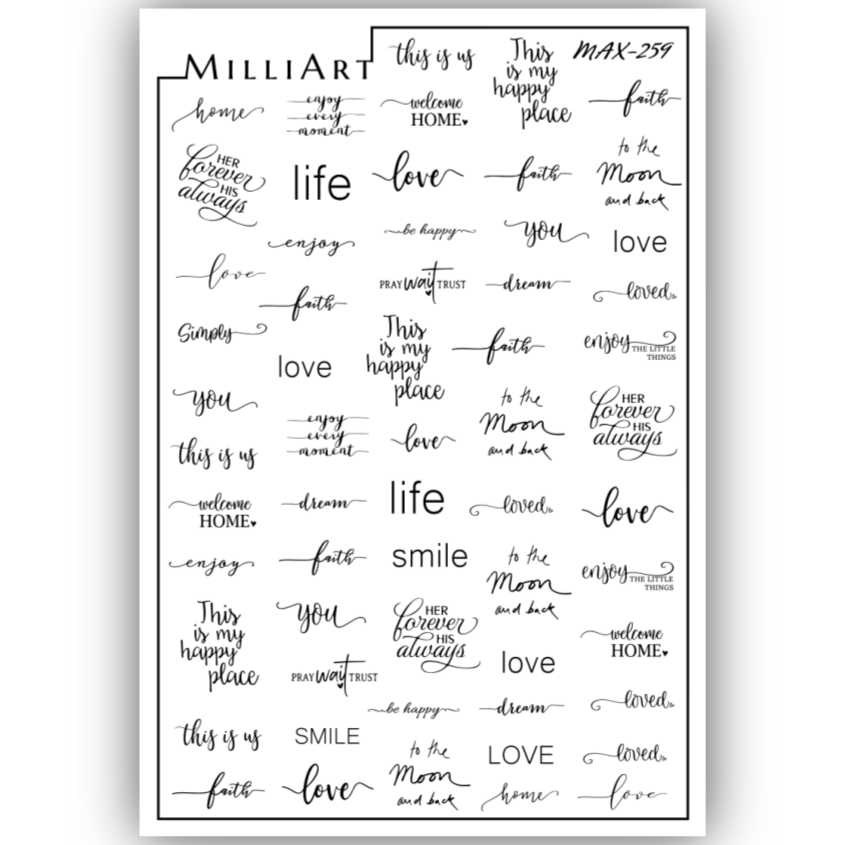 MILLIART
this is us
This
is my
happy
place
MAX-259
home
enjoy
every
moment
welcome
HOME
faith
HER
forever
HIS
always
life
love
faith
to the
Moon
and back
enjoy
be happy
you
love
love
faith
PRAY wait TRUST
dream
loved
Simply
love
This
is my
happy
place
faith
enjoy THE LITTLE
THINGS
you
enjoy
every
moment
love
to the
Moon
and back
HER
forever
HIS
always
this is us
welcome
HOME
dream
life
loved
love
enjoy
faith
smile
to the
Moon
and back
enjoy THE LITTLE
THINGS
This
is my
happy
place
you
HER
forever
HIS
always
love
welcome
HOME
PRAY wait TRUST
be happy
dream
loved
this is us
SMILE
to the
Moon
and back
LOVE
loved
faith
love
home
love